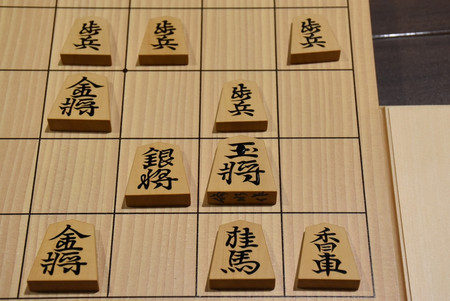 歩兵 歩兵 歩兵
金将 歩兵
銀将 玉将
金将 桂馬 香車